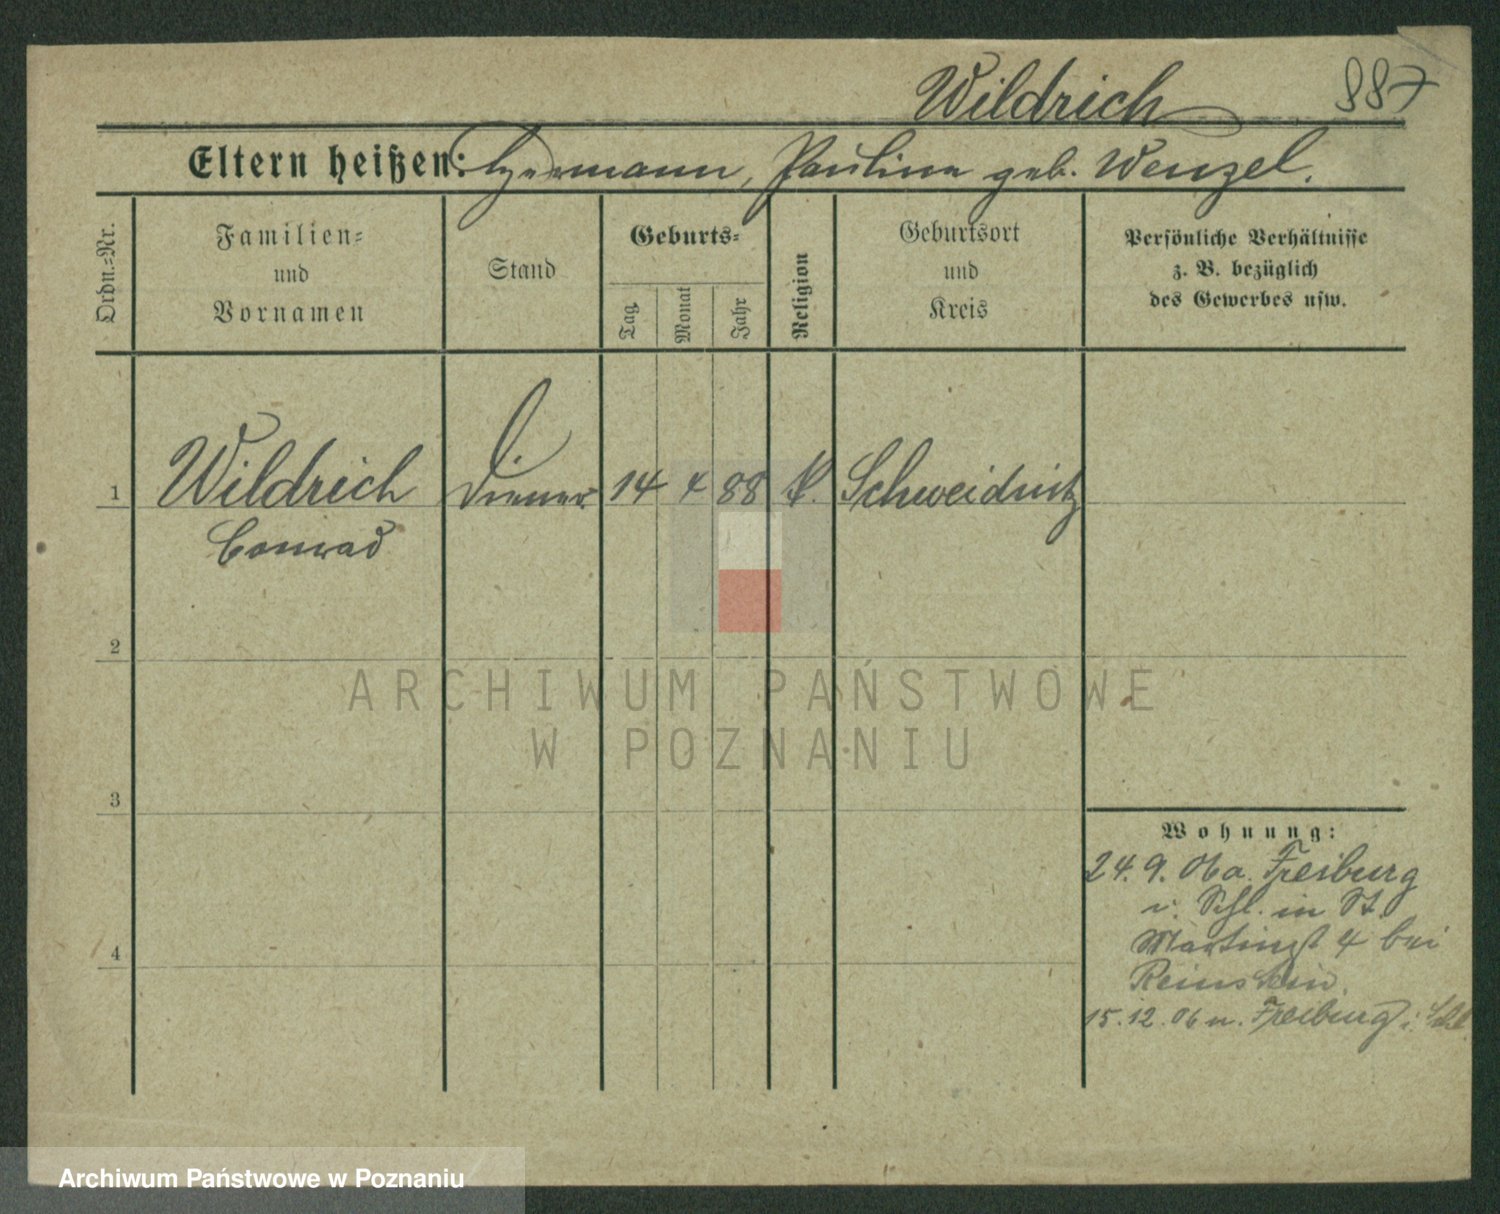 Wildrich
887
Eltern heißen: Hermann, Paulina geb. Wenzel.
Ordn.=Nr.
Familien=
und
Vornamen
Stand
Geburts=
Tag
Monat
Jahr
Religion
Geburtsort
und
Kreis
Persönliche Verhältnisse
z. B. bezüglich
des Gewerbes usw.
1 Wildrich Diener 14 4 88 k. Schweidnitz
Conrad
2
3
4
Wohnung:
24. 9. 06 a. Freiburg
i. Schl. in St.
Martinst 4 bei
Reinstein.
15. 12. 06 n. Freiburg i. Schl.
ARCHIWUM PAŃSTWOWE
W POZNANIU
Archiwum Państwowe w Poznaniu